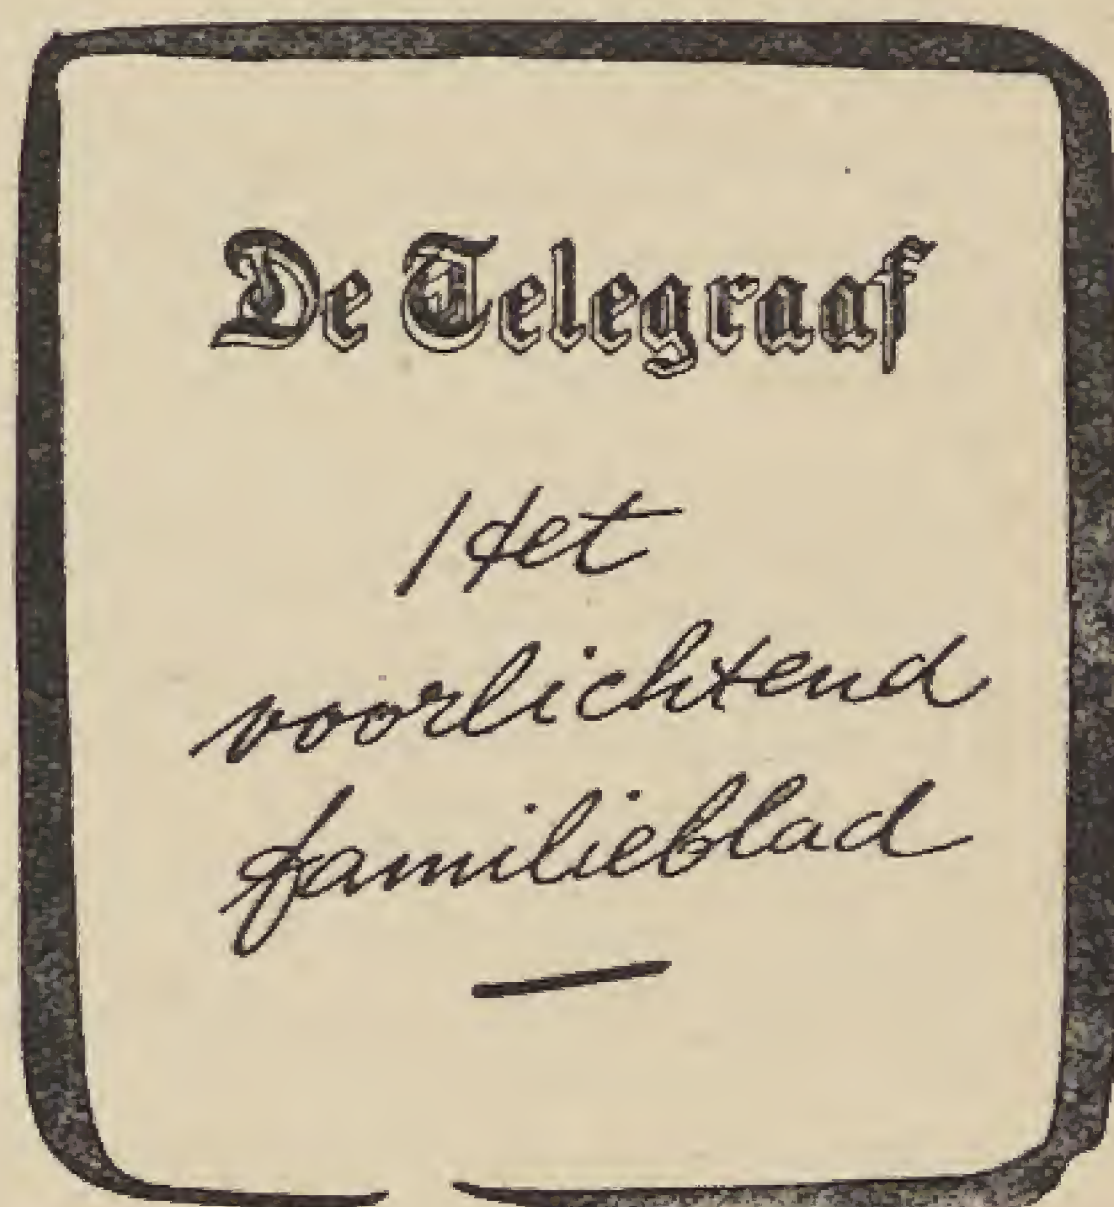 De Telegraaf
Het
voorlichtend
familieblad